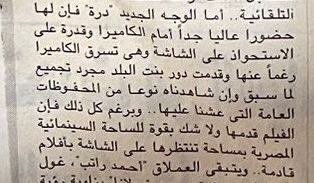 التلقائية.. أما الوجه الجديد "درة" فإن لها
حضورا عاليا جداً أمام الكاميرا وقدرة على
الاستحواذ على الشاشة وهى تسرق الكاميرا
رغماً عنها وقدمت دور بنت البلد مجرد تجميع
لما سبق وإن شاهدناه نوعا من المحفوظات
العامة التى عشنا عليها.. وبرغم كل ذلك فإن
الفيلم قدمها ولا شك بقوة للساحة السينمائية
المصرية بمساحة تنتظرها على الشاشة بأفلام
قادمة.. ويتبقى العملاق "أحمد راتب"، غول